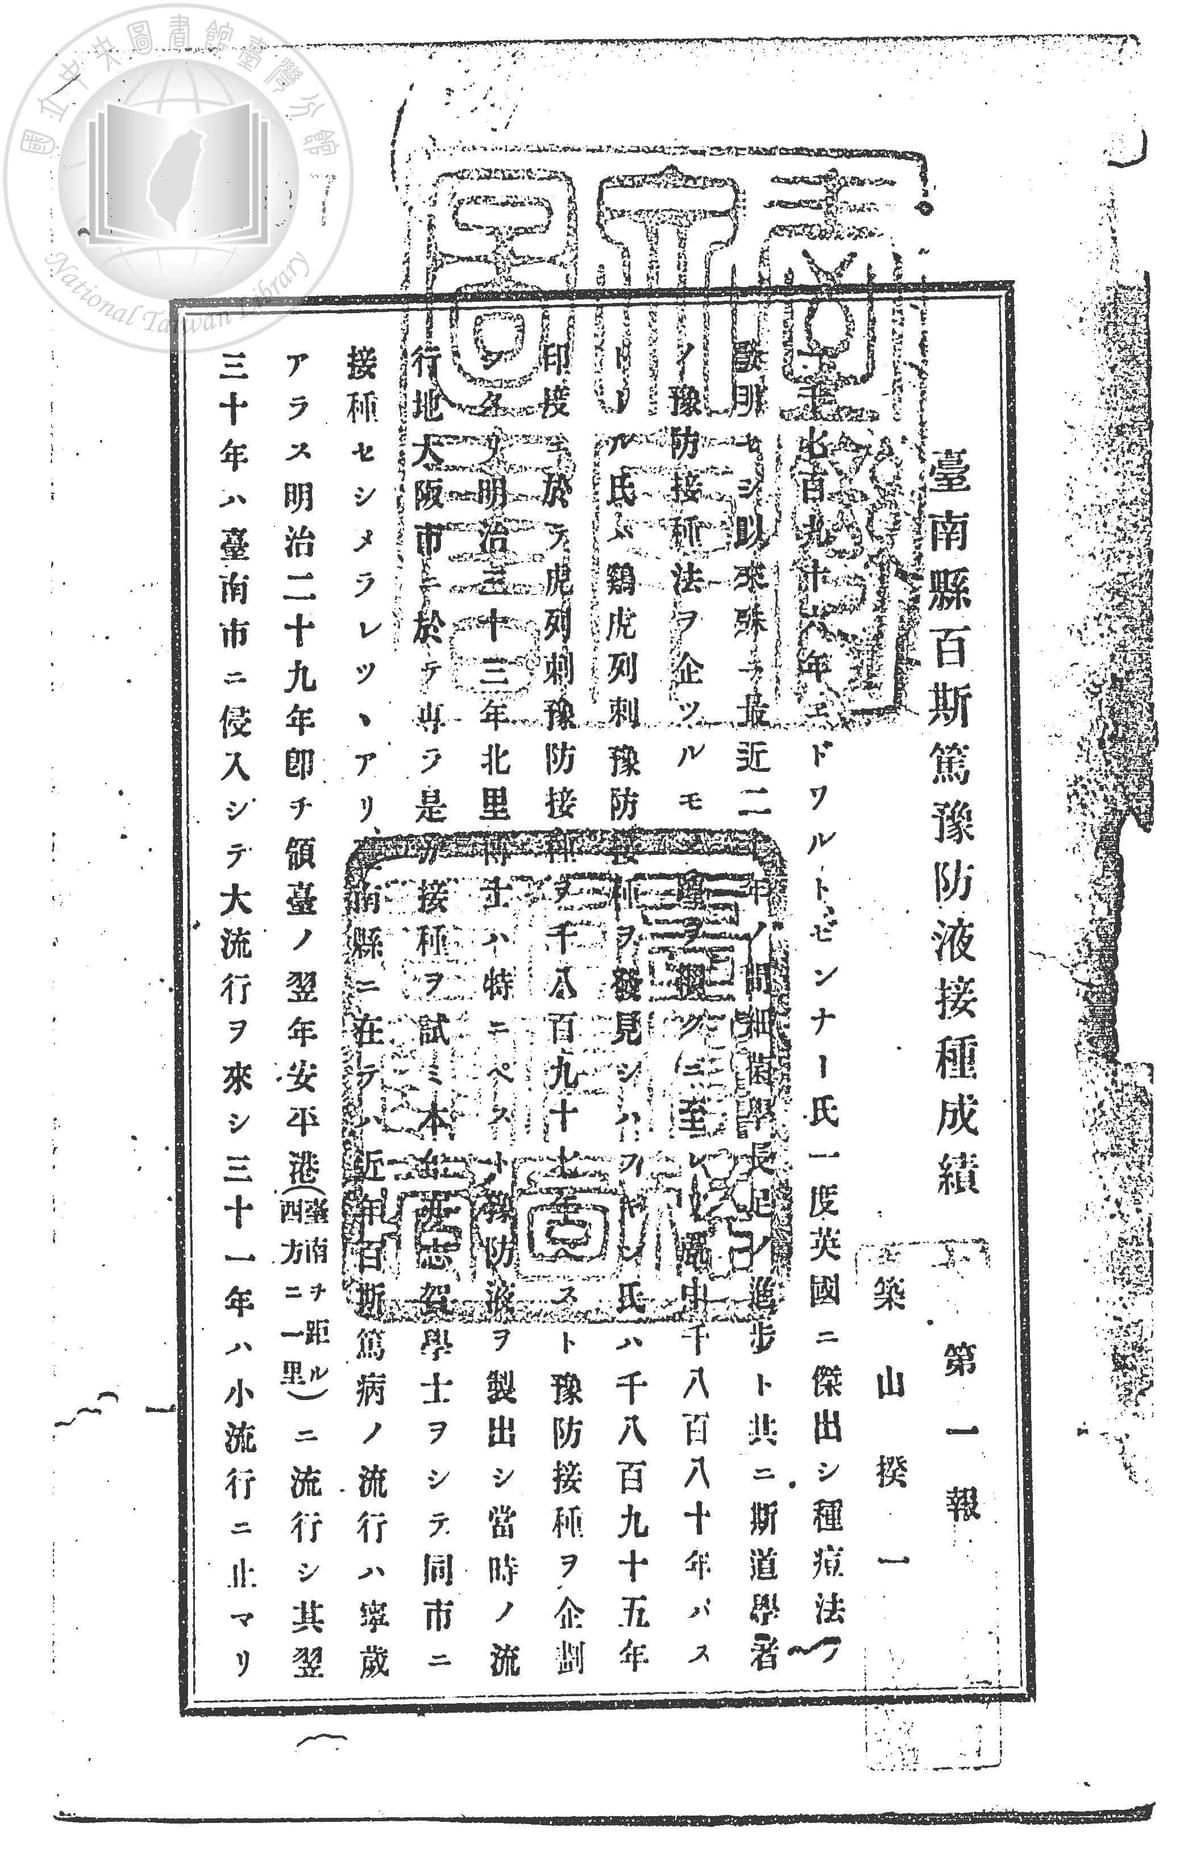 國立中央圖書館臺灣分館
National Taiwan Library
臺南縣百斯篤豫防液接種成績 第一報
築山揆一
一千七百九十六年エドワルトゼンナー氏一度英國ニ傑出シ種痘法ヲ
發明セシ以來殊ニ最近二十年ノ間細菌學長足ノ進步ト共ニ斯道學者
ノ豫防接種法ヲ企ツルモノ踵ヲ接クニ至レリ就中千八百八十年パス
トール氏ハ鷄虎列刺豫防接種ヲ發見シハフキン氏ハ千八百九十五年
印度ニ於テ虎列刺豫防接種ヲ千八百九十七年ペスト豫防接種ヲ企劃
シタリ明治三十三年北里博士ハ特ニペスト豫防液ヲ製出シ當時ノ流
行地大阪市ニ於テ専ラ是カ接種ヲ試ミ本年亦志賀學士ヲシテ同市ニ
接種セシメラレツヽアリ、南縣ニ在テハ近年百斯篤病ノ流行ハ寧歲
アラス明治二十九年卽チ領臺ノ翌年安平港(臺南ヲ距ル西方ニ一里)ニ流行シ其翌
三十年ハ臺南市ニ侵入シテ大流行ヲ來シ三十一年ハ小流行ニ止マリ
一